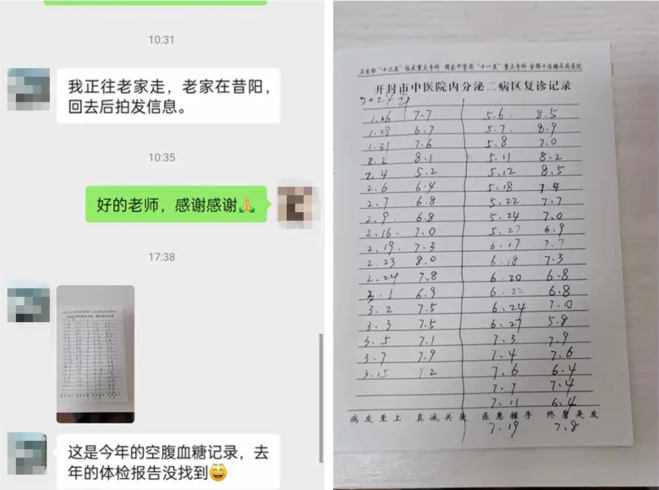 10:31
我正往老家走，老家在昔阳，
回去后拍发信息。
10:35
好的老师，感谢感谢🙏
17:38
这是今年的空腹血糖记录，去
年的体检报告没找到😄
卫生部“十二五”临床重点专科 国家中管局“十一五”重点专科 全国十佳糖尿病医院
开封市中医院内分泌二病区复诊记录
2024年
1.26 7.7 5.6 8.5
1.29 6.7 5.7 8.9
1.31 7.6 5.8 7.0
2.2 8.1 5.11 8.2
2.4 5.2 5.12 8.5
2.6 6.4 5.18 7.4
2.7 6.8 5.22 7.7
2.9 6.8 5.24 7.0
2.16 7.0 5.27 6.9
2.19 7.3 6.17 7.7
2.23 8.0 6.18 7.3
2.24 7.8 6.20 6.8
3.1 6.9 6.22 6.8
3.2 7.5 6.24 7.0
3.3 7.5 6.27 5.8
3.5 7.1 7.3 7.9
3.7 7.9 7.4 7.6
3.15 7.2 7.6 6.4
7.7 7.4
7.11 6.4
病友至上 真诚关爱 医患携手 终身是友
7.19 7.8